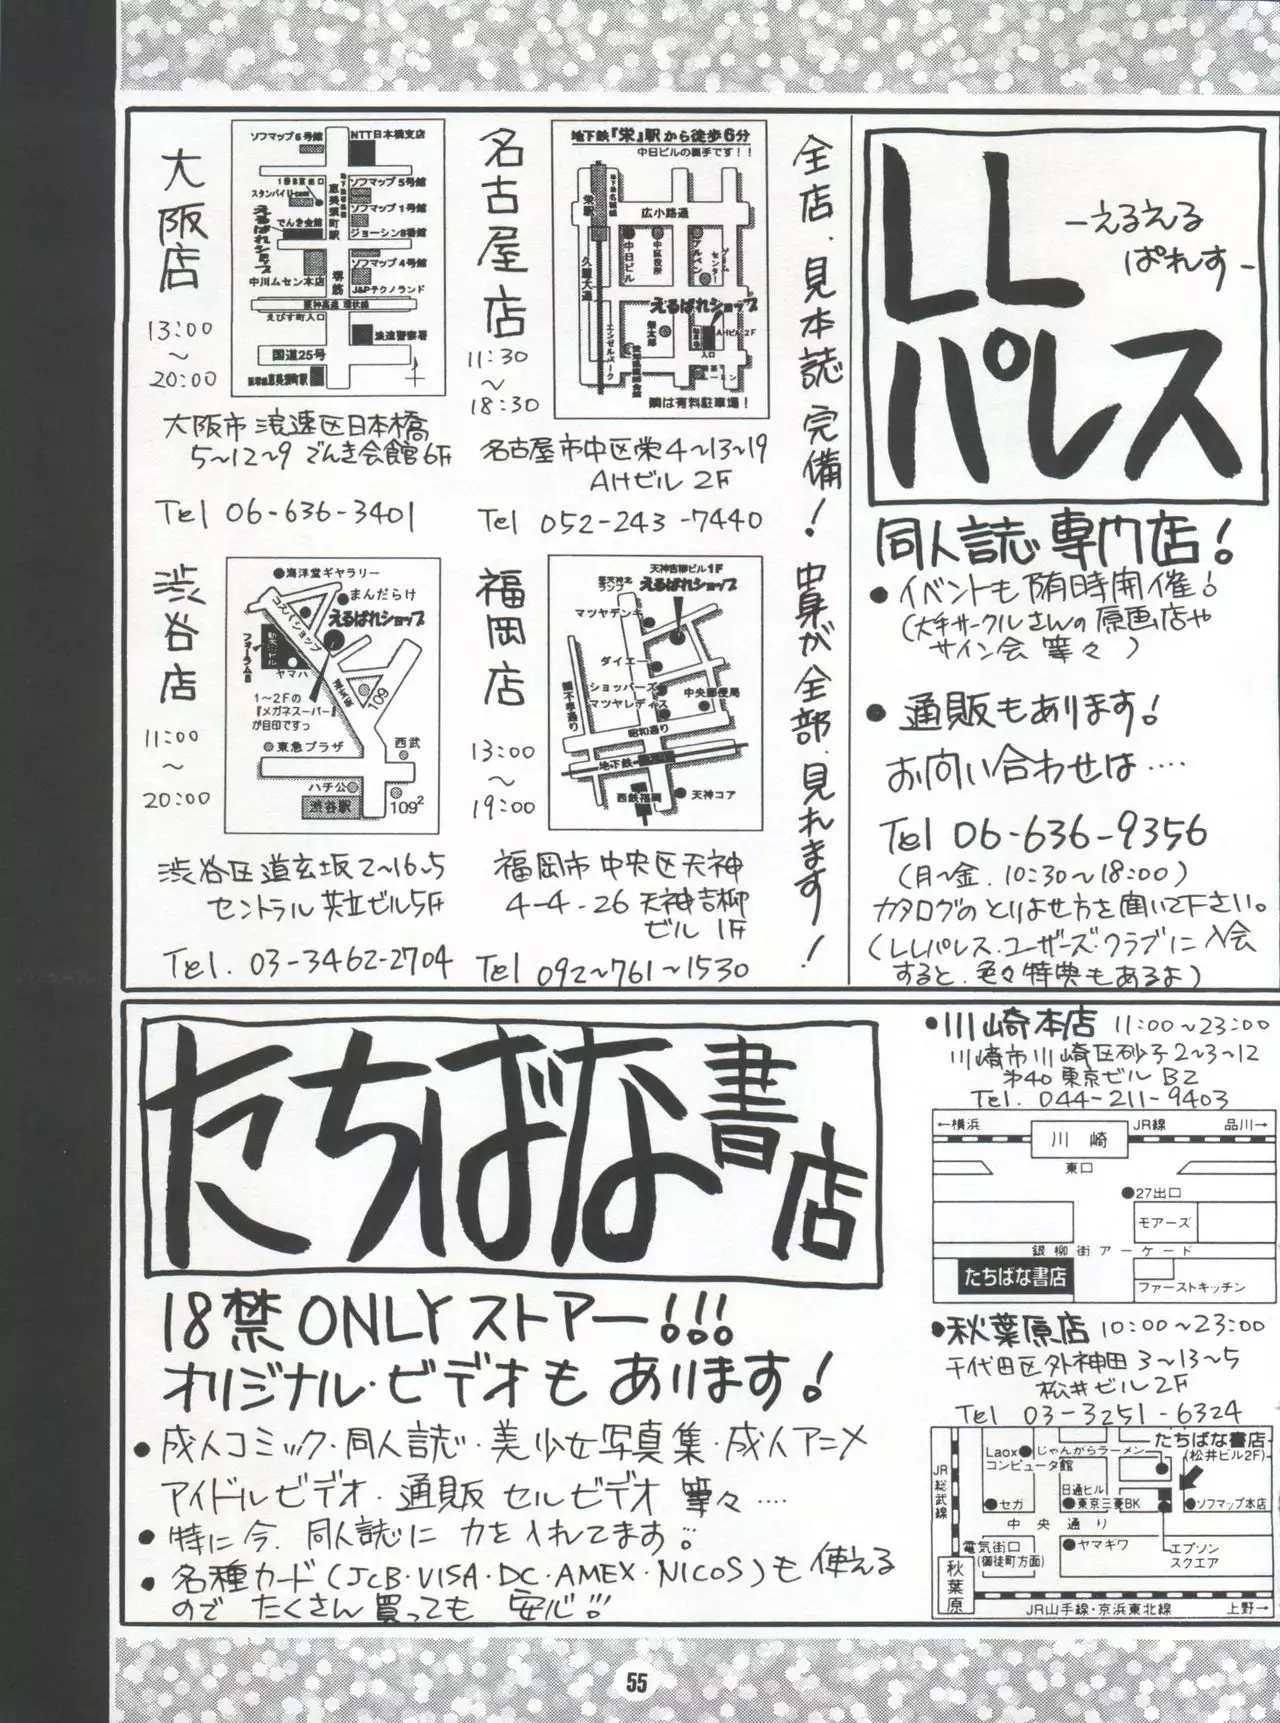 LL
パレス
-えるえる
ぱれす-
同人誌専門店!
●イベントも随時開催!
(大手サークルさんの原画店や
サイン会 等々)
●通販もあります!
お問い合わせは‥‥
Tel 06-636-9356
(月~金. 10:30~18:00)
カタログのとりよせ方を聞いて下さい。
(LLパレス・ユーザーズ・クラブに入会
すると、色々特典もあるよ)
全店、見本誌完備!中身が全部、見れます!
名古屋店
11:30
~
18:30
地下鉄『栄』駅から徒歩6分
中日ビルの裏手です!!
栄駅
広小路通
中日ビル
中区役所
アルペン
ゲームセンター
久屋大通
えるぱれショップ
エンゼルパーク
栄太郎
AHビル2F
入口
隣は有料駐車場!
名古屋市中区栄4~13~19
AHビル 2F
Tel 052-243-7440
大阪店
13:00
~
20:00
ソフマップ6号館
NTT日本橋支店
1番B東出口
スタンバイU-com
ソフマップ5号館
恵美須町駅
ソフマップ1号館
でんき会館
ジョーシン8番館
えるぱれショップ
ソフマップ4号館
中川ムセン本店
堺筋
J&Pテクノランド
阪神高速 環状線
えびす町入口
浪速警察署
国道25号
大阪市浪速区日本橋
5~12~9 でんき会館6F
Tel 06-636-3401
福岡店
13:00
~
19:00
天神吉柳ビル1F
えるぱれショップ
マツヤデンキ
ダイエー
ショッパーズ
マツヤレディス
中央郵便局
昭和通り
地下鉄
西鉄福岡
天神コア
福岡市中央区天神
4-4-26 天神吉柳
ビル 1F
Tel 092~761~1530
渋谷店
11:00
~
20:00
海洋堂ギャラリー
まんだらけ
コスパショップ
えるぱれショップ
フォーラム8
ヤマハ
1~2Fの
『メガネスーパー』
が目印ですっ
109
東急プラザ
西武
ハチ公
渋谷駅
109²
渋谷区道玄坂2~16~5
セントラル共立ビル5F
Tel. 03-3462-2704
たちばな書店
18禁ONLYストアー!!!
オリジナル・ビデオもあります!
●成人コミック・同人誌・美少女写真集・成人アニメ
アイドルビデオ・通販セルビデオ 等々‥‥
●特に今、同人誌に力を入れてます!!
●各種カード(JCB・VISA・DC・AMEX・NICOS)も使える
のでたくさん買っても安心!!!
●川崎本店 11:00~23:00
川崎市川崎区砂子2~3~12
第40東京ビル B2
Tel. 044-211-9403
←横浜
川崎
JR線
品川→
東口
●27出口
モアーズ
銀柳街アーケード
たちばな書店
ファーストキッチン
●秋葉原店 10:00~23:00
千代田区外神田3~13~5
松井ビル2F
Tel 03-3251-6324
たちばな書店
(松井ビル2F)
Laox
コンピュータ館
じゃんがらラーメン
JR総武線
セガ
日通ビル
東京三菱BK
ソフマップ本店
中央通り
電気街口
(御徒町方面)
ヤマギワ
エプソン
スクエア
秋葉原
JR山手線・京浜東北線
上野→
55